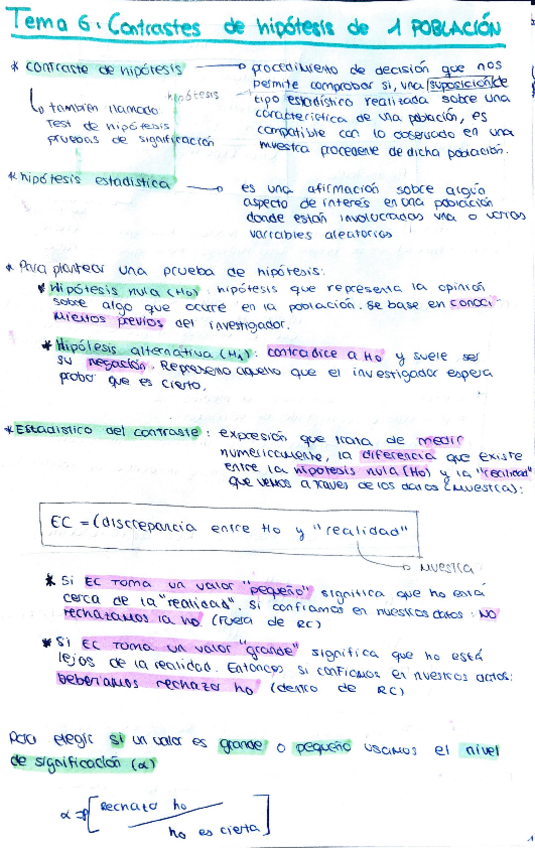 Tema 6: Contrastes de hipótesis de 1 POBLACIÓN
* contraste de hipótesis → procedimiento de decisión que nos
permite comprobar si, una suposición de
hipótesis
tipo estadístico realizada sobre una
característica de una población, es
compatible con lo observado en una
muestra procedente de dicha población.
también llamado
Test de hipótesis
pruebas de significación
* hipótesis estadística → es una afirmación sobre algún
aspecto de interés en una población
donde están involucradas una o varias
variables aleatorias
* Para plantear una prueba de hipótesis:
* Hipótesis nula (H0): hipótesis que representa la opinión
sobre algo que ocurre en la población. Se base en conoci-
mientos previos del investigador.
* Hipótesis alternativa (H1): contradice a H0 y suele ser
su negación. Representa aquello que el investigador espera
probar que es cierto.
* Estadístico del contraste: expresión que trata de medir
numéricamente, la diferencia que existe
entre la hipótesis nula (H0) y la "realidad"
que vemos a través de los datos (muestra):
EC = (discrepancia entre H0 y "realidad"
→ muestra
* Si EC toma un valor "pequeño" significa que ho está
cerca de la "realidad". Si confiamos en nuestros datos: NO
rechazamos la ho (fuera de RC)
* Si EC toma un valor "grande" significa que ho está
lejos de la realidad. Entonces si confiamos en nuestros datos:
deberíamos rechazar ho (dentro de RC)
Para elegir si un valor es grande o pequeño usamos el nivel
de significación (α)
α = P[Rechazo ho / ho es cierta]
1